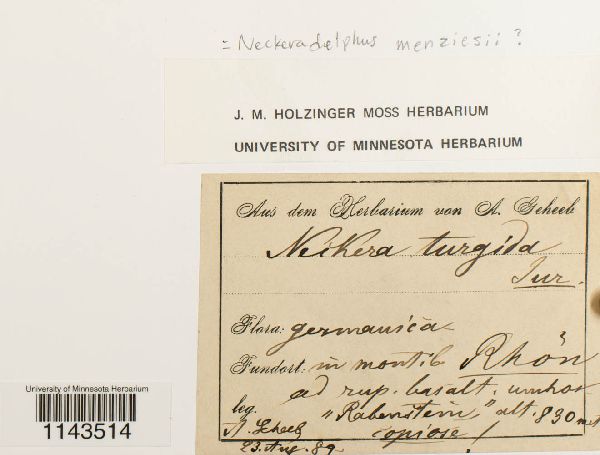 = Neckeradelphus menziesii ?
J. M. HOLZINGER MOSS HERBARIUM
UNIVERSITY OF MINNESOTA HERBARIUM
Aus dem Herbarium von A. Geheeb
Neckera turgida
Jur.
Flora: germanica
Fundort: in montib. Rhön
ad rup. basalt. umbros
leg. "Rabenstein" alt. 830 met
A. Geheeb copiose!
23. Aug. 89
University of Minnesota Herbarium
1143514